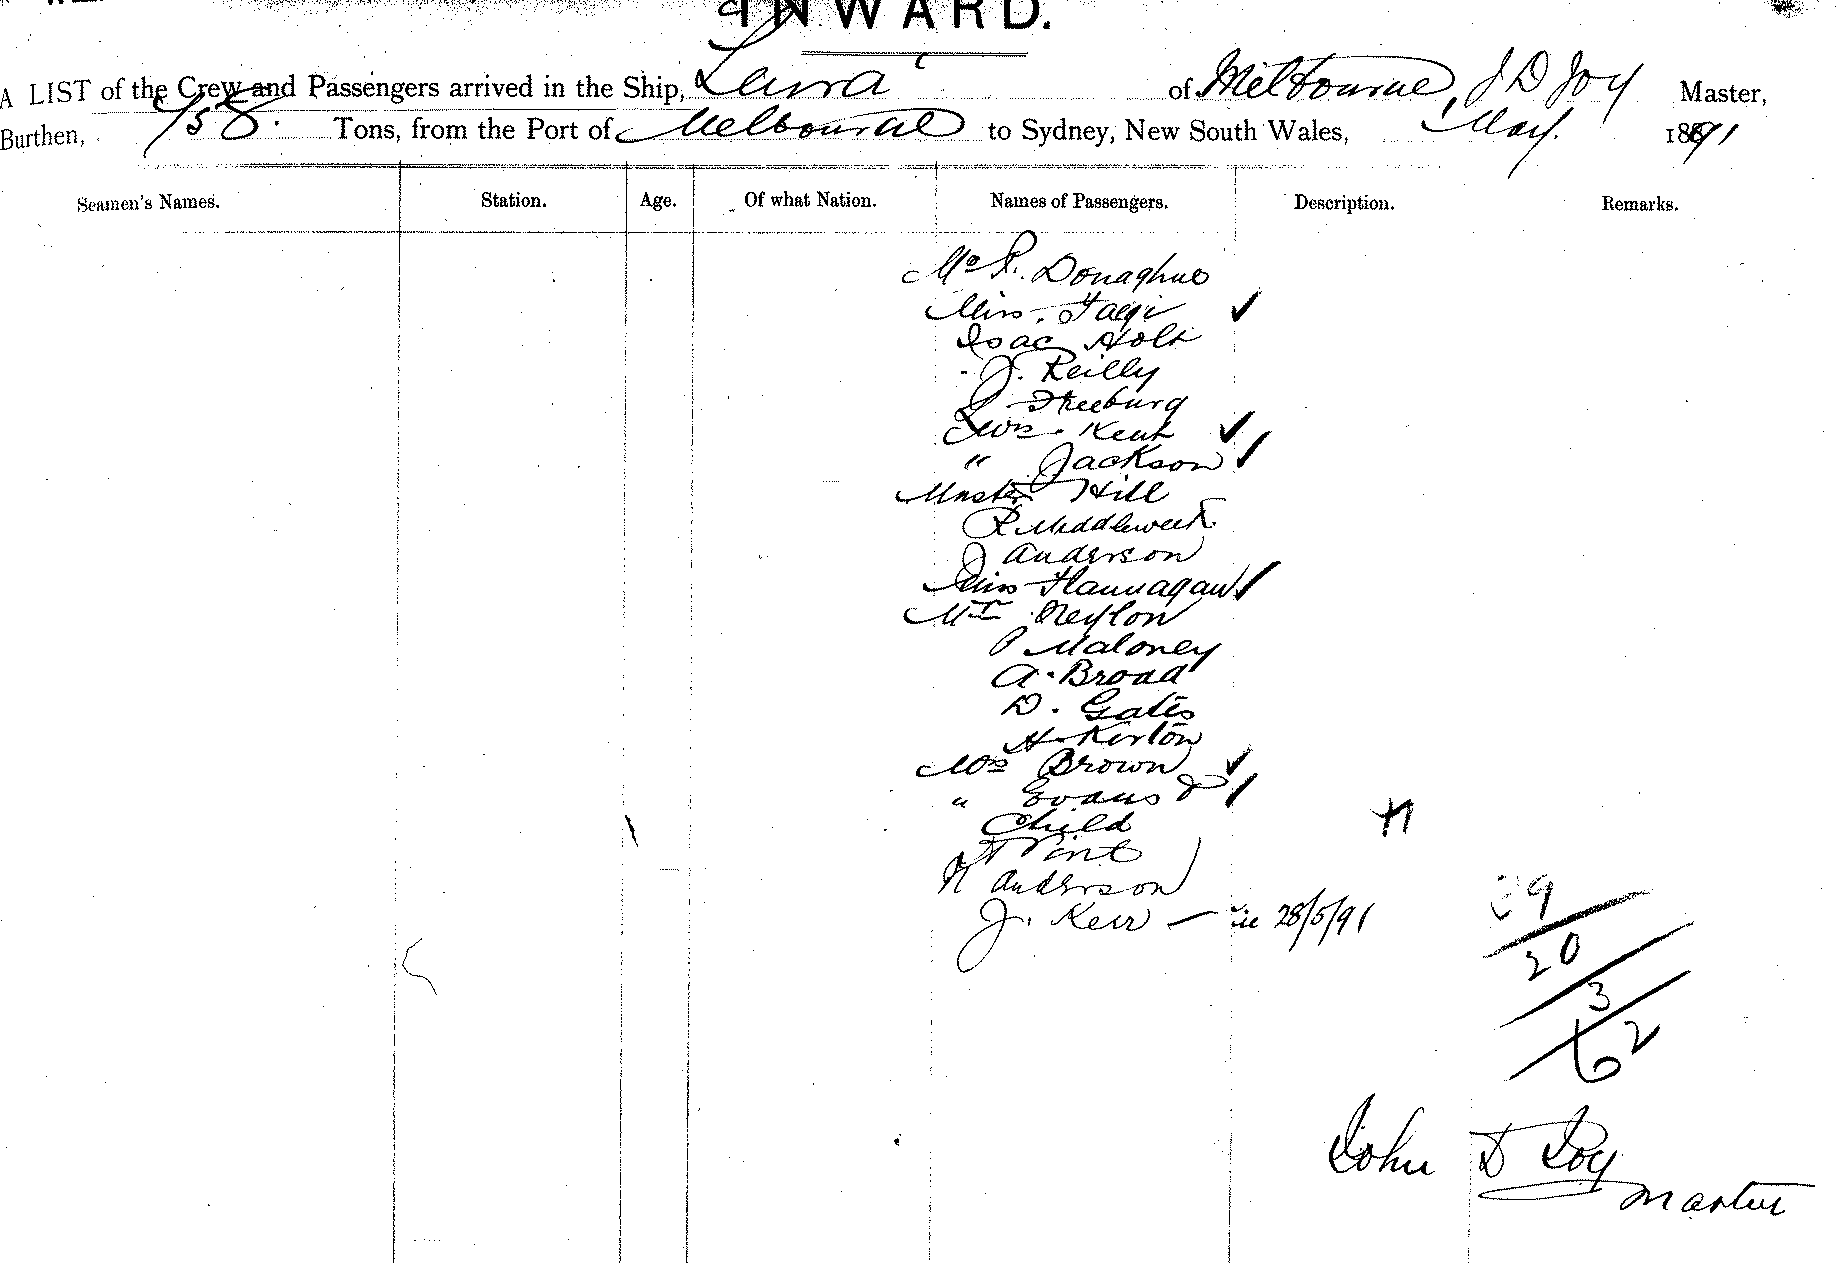 INWARD.
A LIST of the Crew and Passengers arrived in the Ship, of Melbourne, J D Joy Master,
Burthen, 458. Tons, from the Port of Melbourne to Sydney, New South Wales, May. 1891
Seamen's Names. Station. Age. Of what Nation. Names of Passengers. Description. Remarks.
Donaghue
Miss.
Isac Holt
J. Reilly
Freeburg
Mrs. Kent
" Jackson
Master Hill
R Middleweek
J Anderson
Miss Flannagan
Mr Neylon
P Maloney
A. Broad
D. Gates
H. Kirton
Mrs Brown
" Evans &
Child
Anderson
J. Keir — 28/5/91
20
3
62
John D Joy
Master